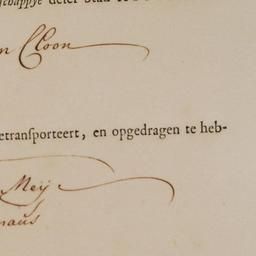 schappye deser Stad
n Cloon
etransporteert, en opgedragen te heb-
Meij
naus